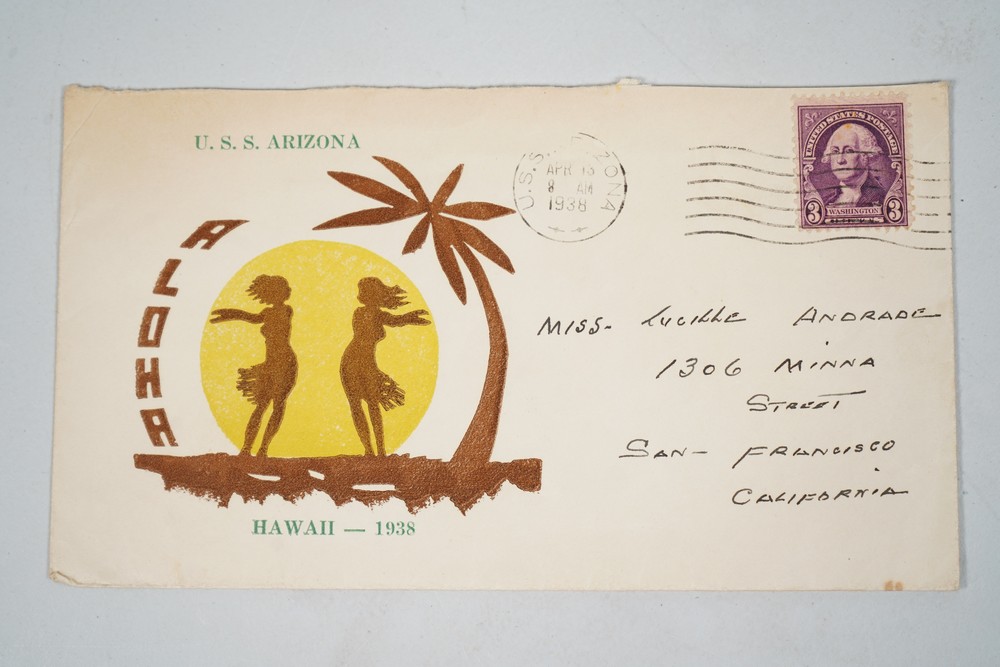 U. S. S. ARIZONA
ALOHA
HAWAII — 1938
U.S.S. ZONA
APR 16
8 AM
1938
UNITED STATES POSTAGE
3 WASHINGTON 3
MISS- LUCILLE ANDRADE
1306 MINNA
STREET
SAN- FRANCISCO
CALIFORNIA